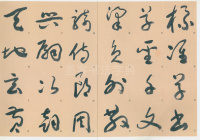 標準草書
草聖千文
梁員外散
騎侍郎周
興嗣次韻
天地玄黃